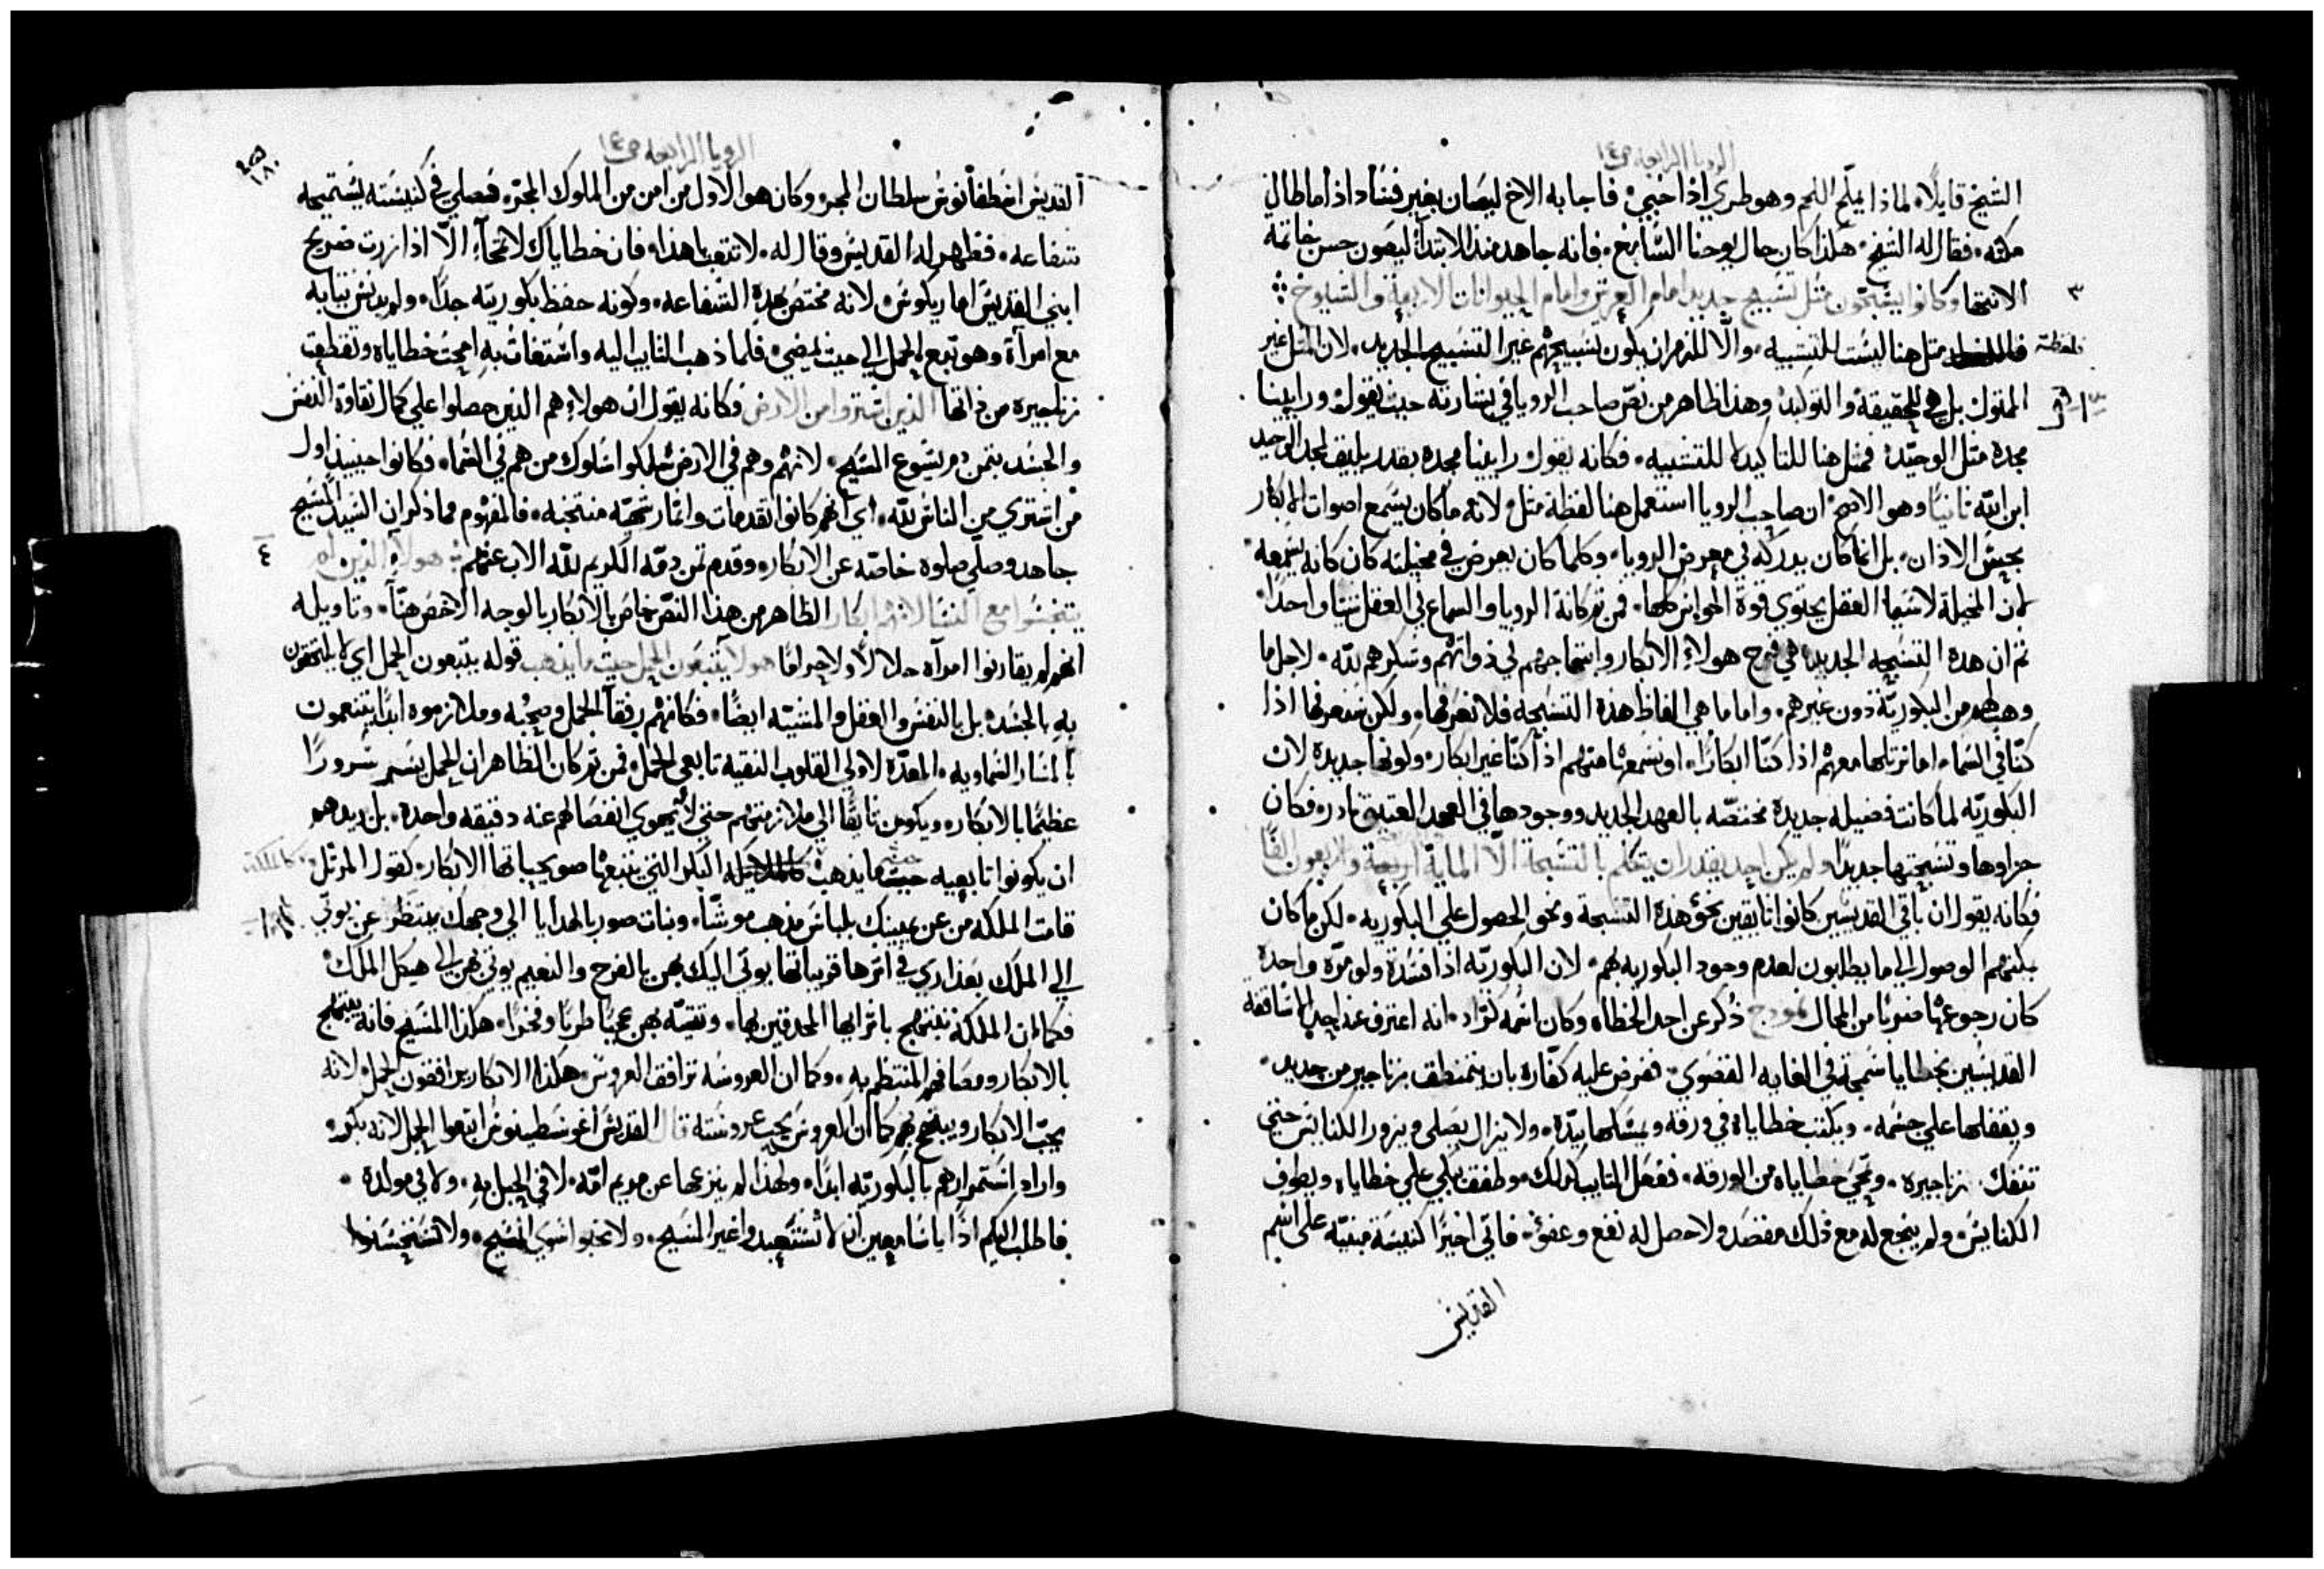 الرويا الرابعه ص١٤
الشيخ قايلاً لماذا يملح اللحم وهو طري اذا خبي فاجابه الاخ ليصان بغير فساد اذا ما طال
مكثه فقال له الشيخ هكذا كان حال يوحنا السابغ فانه جاهد منذ الابتدآ ليصون حسن خاتمة
٣ الانتها وكانوا يسبحون مثل تسبيح جديد امام العرش وامام الحيوانات الاربعة والشيوخ
فلفظة مثل هنا ليست للتشبيه والا للزم ان يكون تسبيحهم غير التسبيح الجديد لان المثل غير
الممثول بل هي للحقيقة والتوكيد وهذا ظاهر من نص صاحب الرويا في بشارته حيث يقول وراينا
مجده مثل الوحيد فمثل هنا للتاكيد لا للتشبيه فكانه يقول راينا مجده بقدر يليق لمجد الوحيد
ابن الله ثانيًا وهو الاصح ان صاحب الرويا استعمل هنا لفظة مثل لانه ما كان يسمع اصوات الابكار
بحس الاذان بل انما كان يدركه في معرض الرويا وكلما كان يعرض في مخيلته كان كانه يسمعه
لان المخيلة لاسيما العقل يحتوي قوة الحواس كلها فمن ثم كانة الرويا والسماع في العقل شيًا واحدًا
ثم ان هذه التسبحه الجديده هي فرح هولاء الابكار وابتهاجهم في ذواتهم وشكرهم لله لاجل ما
وهب لهم من البكورية دون غيرهم واما ما هي الفاظ هذه التسبحه فلا نعرفها ولكن سنعرفها اذا
كنا في السماء اما نرتلها معهم اذا كنا ابكارًا او نسمعها منهم اذا كنا غير ابكار وكونها جديدة لان
البكوريه لما كانت فضيله جديدة مختصه بالعهد الجديد ووجودها في العهد العتيق نادر فكان
جزاوها وتسبحتها جديدًا ولم يكن احد يقدر ان يتكلم بالتسبحة الا الماية اربعة والاربعون الفًا
فكانه يقول ان باقي القديسين كانوا تايقين نحو هذه التسبحة ونحو الحصول علي البكوريه لكن ما كان
يمكنهم الوصول الي ما يطلبون لعدم وجود البكوريه بهم لان البكوريه اذا فسدة ولو مرة واحدة
كان رجوعها ضربًا من المحال نموذج ذكر عن احد الخطاه وكان اسمه كنراد انه اعترف عند احد الاساقفة
القديسين بخطايا سمجة في الغايه القصوي ففرض عليه كفاره بان يتمنطق بزناجير من حديد
ويقفلها علي جسمه ويكتب خطاياه في ورقه ويمسكها بيده ولا يزال يصلي ويزور الكنايس حتي
تنفك زناجيره وتمحي خطاياه من الورقه ففعل التايب كذلك وطفق يبكي علي خطاياه ويطوف
الكنايس ولم ينجع له مع ذلك مقصد ولا حصل له نفع وعفو فاتي اخيرًا كنيسة مبنيه علي اسم
القديس
الرويا الرابعه ص١٤
١٨٠
القديس اسطفانوس سلطان المجر وكان هو الاول من امن من الملوك المجره فصلي في كنيسته يستميحه
شفاعه فظهر له القديس وقال له لا تتعب يا هذا فان خطاياك لا تمحآ الا اذا زرت ضريح
ابني القديس اماريكوس لانه مختص بهذه الشفاعه وكونه حفظ بكوريته جدًا ولم يدنس ثيابه
مع امرآة وهو تبع الحمل الي حيث يمضي فلما ذهب التايب اليه واستغاث به امحت خطاياه وتقطعت
زناجيره من ذاتها الذين اشتروا من الارض فكانه يقول ان هولاء هم الذين حصلوا علي كمال نقاوة النفس
والجسد بثمن دم يسوع المسيح لانهم وهم في الارض سلكوا سلوك من هم في السماء فكانوا حينيذ اول
من اشتري من الناس لله اي انهم كانوا تقدمات واثمار شهيه منتخبه فالمفهوم مما ذكر ان السيد المسيح
٤ جاهد وصلي صلوة خاصه عن الابكار وقدم ثمن دمه الكريم لله الاب عنهم هولآ الذين لم
يتنجسوا مع النسا لانهم ابكار الظاهر من هذا النص خاص بالابكار بالوجه الاخص هنا وتاويله
انهم لم يقارنوا امرآه حلالاً ولا حرامًا هولا يتبعون الحمل حيث ما يذهب قوله يتبعون الحمل اي لا يلتحقون
به بالجسد بل بالنفس والعقل والمشيه ايضًا فكانهم رفقآ الحمل وصحبه وملازموه ابدًا يتنعمون
بالمسار السماويه المعده لاولي القلوب النقيه تابعي الحمل فمن ثم كان الظاهر ان الحمل يسر سرورًا
عظيمًا بالابكار ويكون تايقًا الي ملازمتهم حتي لا يهوي انفصالهم عنه دقيقه واحده بل يريدهم
ان يكونوا تابعيه حيثما يذهب كالملكة البكر التي يتبعها صويحباتها الابكار كقول المرتل
قامت الملكه من عن يمينك بلباس مذهب موشا وبنات صور بالهدايا الي وجهك ينتظرن يوتي
الي الملك بعذاري في اثرها قريباتها يوتي اليك بهن بالفرح والنعيم يوتي بهن الي هيكل الملك
فكما ان الملكة تبتهج باترابها المحدقين بها وتتيه بهن عجبًا طربًا وفخرًا هكذا المسيح فانه يبتهج
بالابكار ومصافهم المنتظم به وكما ان العروسه ترافق العروس هكذا الابكار يرافقون الحمل لانه
يحب الابكار ويبتهج بهم كما ان العروس يحب عروسته قال القديس اغوسطينوس اتبعوا الحمل لانه بكر
واراد استمرارهم بالبكوريه ابدًا ولهذا لم ينزعها عن مريم امه لا في الحبل به ولا في مولده
فاطلب اليكم اذًا يا سامعين ان لا تستعبدوا غير المسيح ولا تحبوا سوي المسيح ولا تستحسنوا